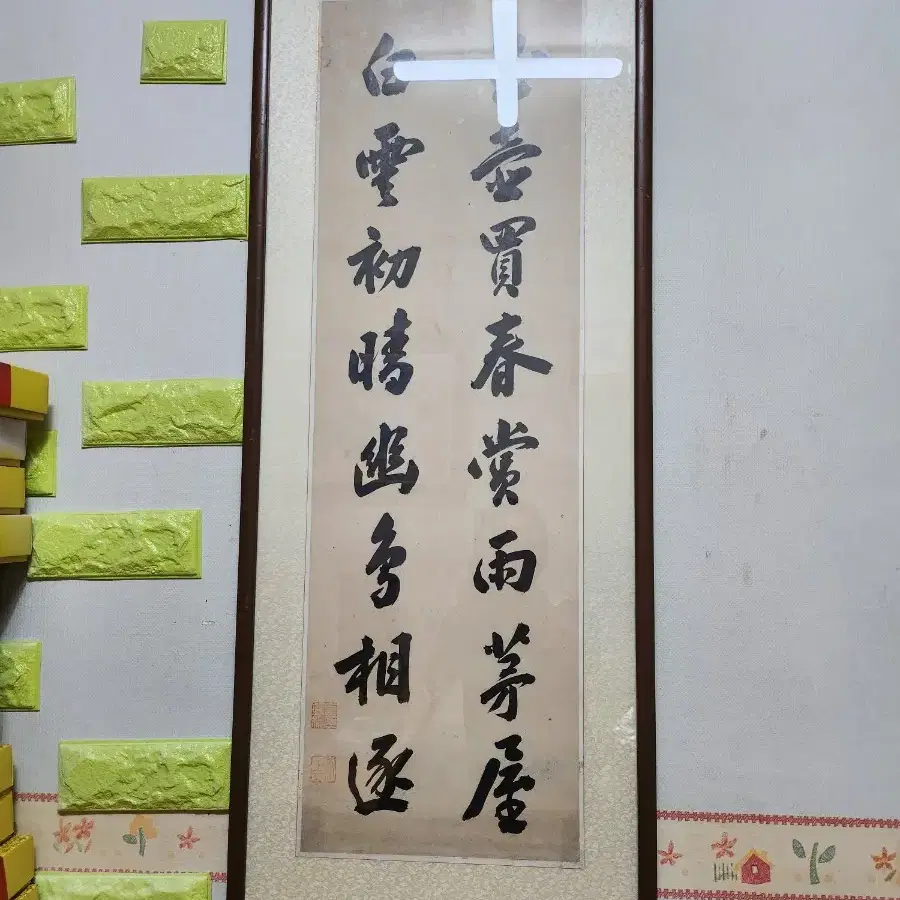 壺買春賞雨茅屋
白雲初晴幽鳥相逐